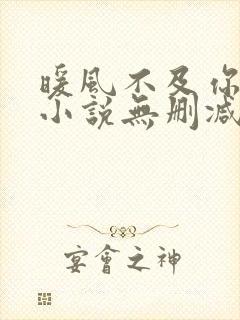 暖風不及你
小說無刪減
宴會之神